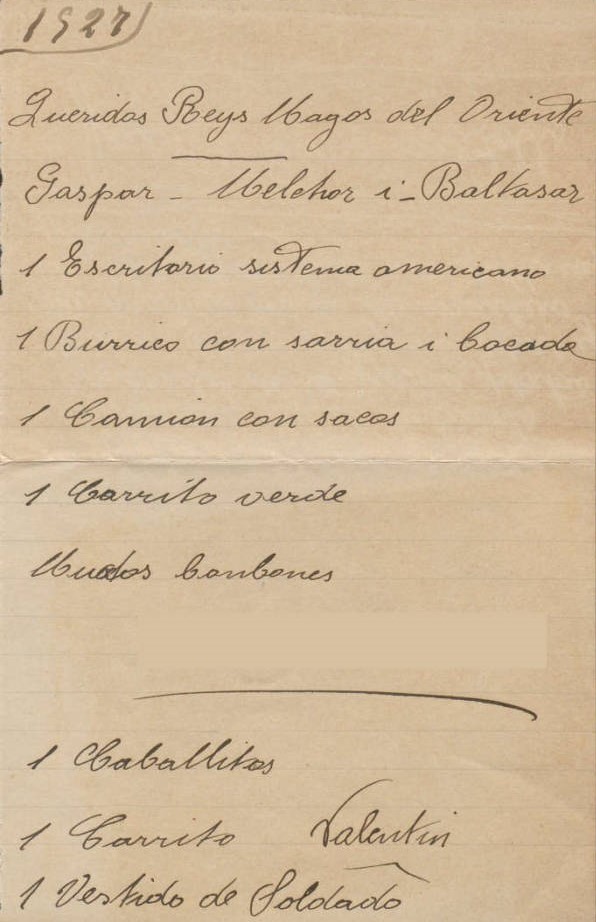 1927
Queridos Reys Magos del Oriente
Gaspar - Melchor i - Baltasar
1 Escritorio sistema americano
1 Burrico con sarria i bocado
1 Camion con sacos
1 Carrito verde
Muchos bonbones
1 Caballitos
1 Carrito Valentin
1 Vestido de Soldado